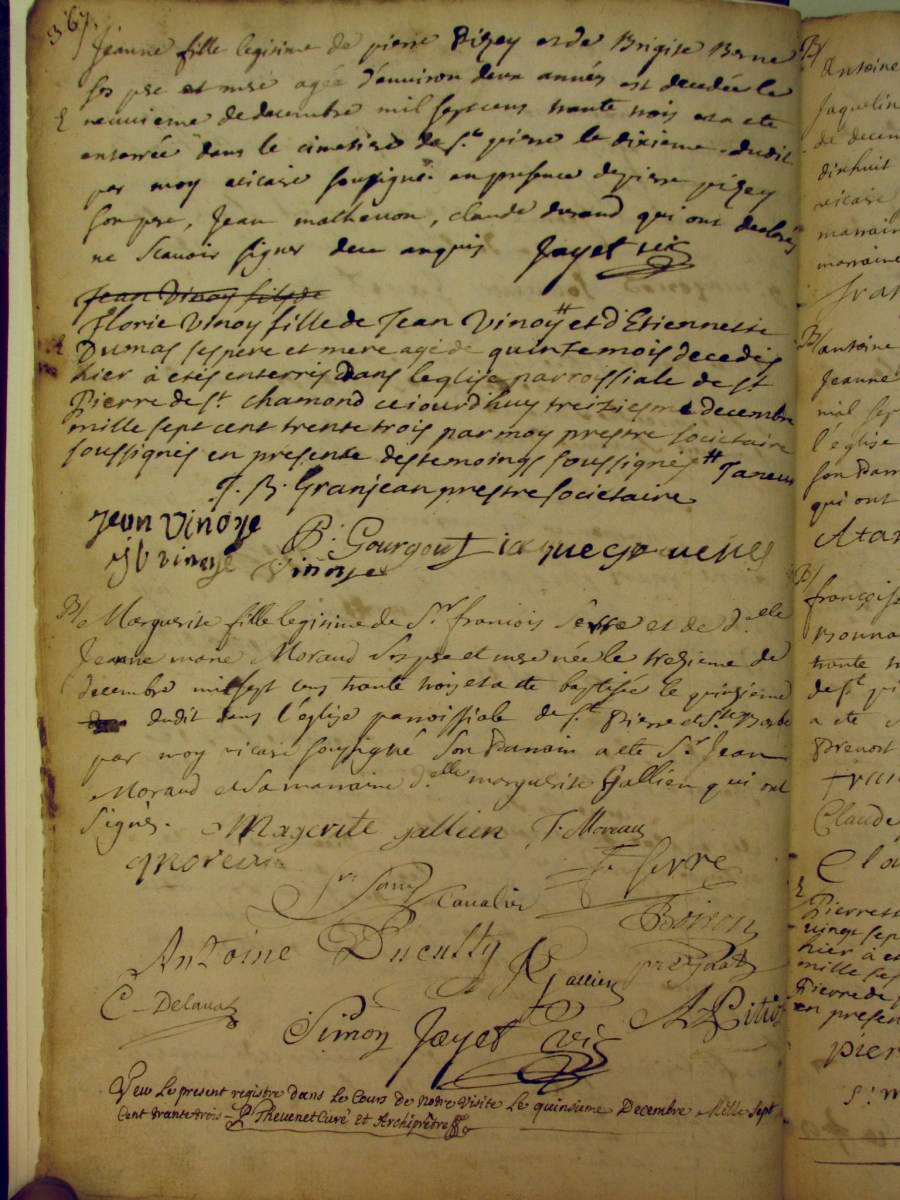 367.
Jeanne fille legitime de pierre Pizey et de Brigite Berne
ses pere et mere agée d'environ deux années est decedée le
neuvieme de decembre mil sept cens trente trois et a ete
enterrée dans le cimetiere de St. pierre le dixieme dudit
par moy vicaire soussigné en presence de pierre pizey
son pere, Jean mathevon, claude durand qui ont declarés
ne scavoir signer de ce enquis Jayet vic
Jean Vinoy fils de
Florie Vinoy fille de Jean Vinoy # et d'Etiennette
Dumas ses père et mere agé de quinze mois decedés
hier à etés enterrés dans leglise parroissiale de st
Pierre de st. chamond ce iourd'huy treiziesme decembre
mille sept cent trente trois par moy prestre societaire
soussignés en presente des temoings soussignés #
J. B. Granjean prestre societaire
Jean Vinoye
jb vinoye B. Gourgout
Vinoye
B/ Marguerite fille legitime de Sr. françois Serre et de d.elle
Jeanne marie Moraud ses pere et mere née le trezieme de
decembre mil sept cens trente trois et a ete baptisée le quinzieme
dudit dans l'église paroissiale de St. Pierre et Ste Barbe
par moy vicaire soussigné son Parrain a ete Sr. Jean
Moraud et sa marraine d.elle marguerite Gallien qui ont
Signés. Magerite gallien J. Moraud
moreau
F Serre
Cavalier Boiron
Antoine Ducultty
Gallien
C. Delaval
Simon Jayet vic
Veu le present registre dans le Cours de Notre Visite le quinsieme Decembre Mille Sept
Cent trante trois - P. Thevenet Curé et Archiprêtre
B/
Antoine
Jaquelin
de decem
dixhuit
vicaire
marrain
marraine
B/ antoine
Jeanne
mil sep
l'église
son Parr
qui ont
B/
françoise
Bonna
trante
de St pi
a ete
Prevost
Claude
Pierre
vingt sep
hier à et
mille sep
Pierre de
en presen
pier